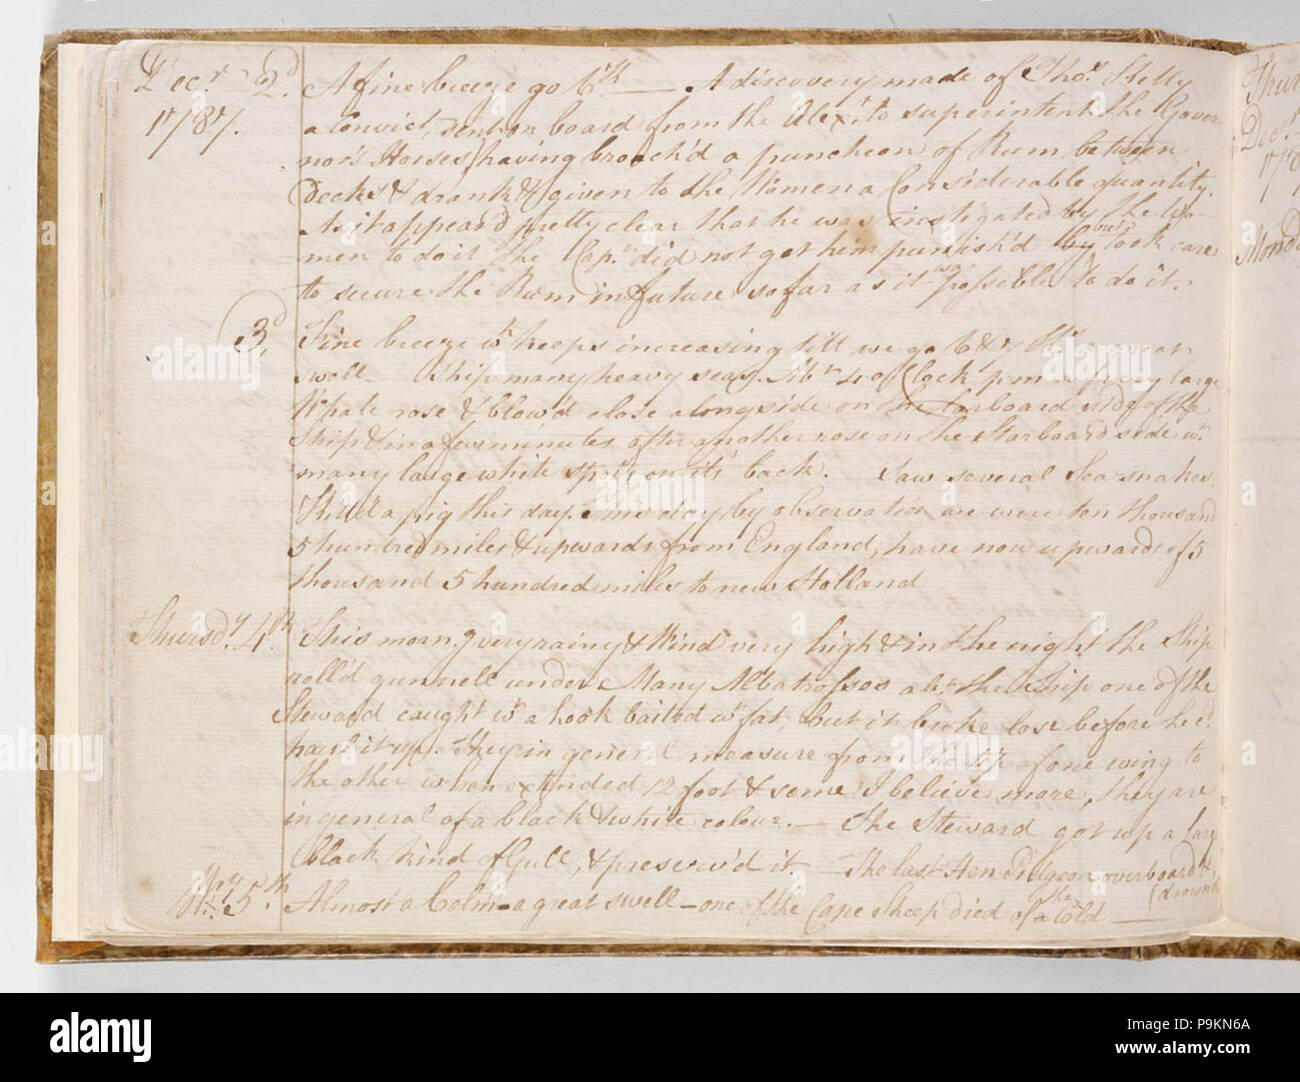 Decr. 2d. A fine breeze go 6 Kt — A discovery made of Thos. Kelly
1787. a Convict, sent on board from the Alexr. to superintent the Gover
nor's Horses having broach'd a puncheon of Rum between
Decks & drank & given to the Women a Considerable quantity.
As it appear'd pretty clear that he was instigated by the Wo-
men to do it the Capn. did not get him punish'd but took care
to secure the Rum in future so far as it was possible to do it.
3d. Fine breeze wh. keeps increasing till we go 6 & 7 Kts a great
swell — Ship many heavy seas. Abt. 4 o'Clock p m a very large
Whale rose & blow'd close alongside on the Larboard side of the
Ship & in a few minutes after another rose on the Starboard side wt.
many large white spots on its back. Saw several Sea-snakes.
Kill'd a pig this day. This day by observation we were ten thousand
5 hundred miles & upwards from England, have now upwards of 5
thousand 5 hundred miles to new Holland
Thursdy. 4th This morng. very rainy & Wind very high & in the night the Ship
roll'd gunnell under. Many Albatrosses abt. the Ship one of the
Steward caught wt. a hook baited wt. fat, but it broke lose before he cd.
haul it up. They in general measure from the tip of one wing to
the other when extended 12 foot & some I believe more, they are
in general of a black & white colour. — The Steward got up a large
black kind of Gull, & preserv'd it. — The last Hen Pidgeon overboard &
(drown'd
5th. Almost a Calm — a great swell — one of the Cape sheep died of a Cold —
Thurs
Decr.
178
Mond
alamy
Image ID: P9KN6A
www.alamy.com